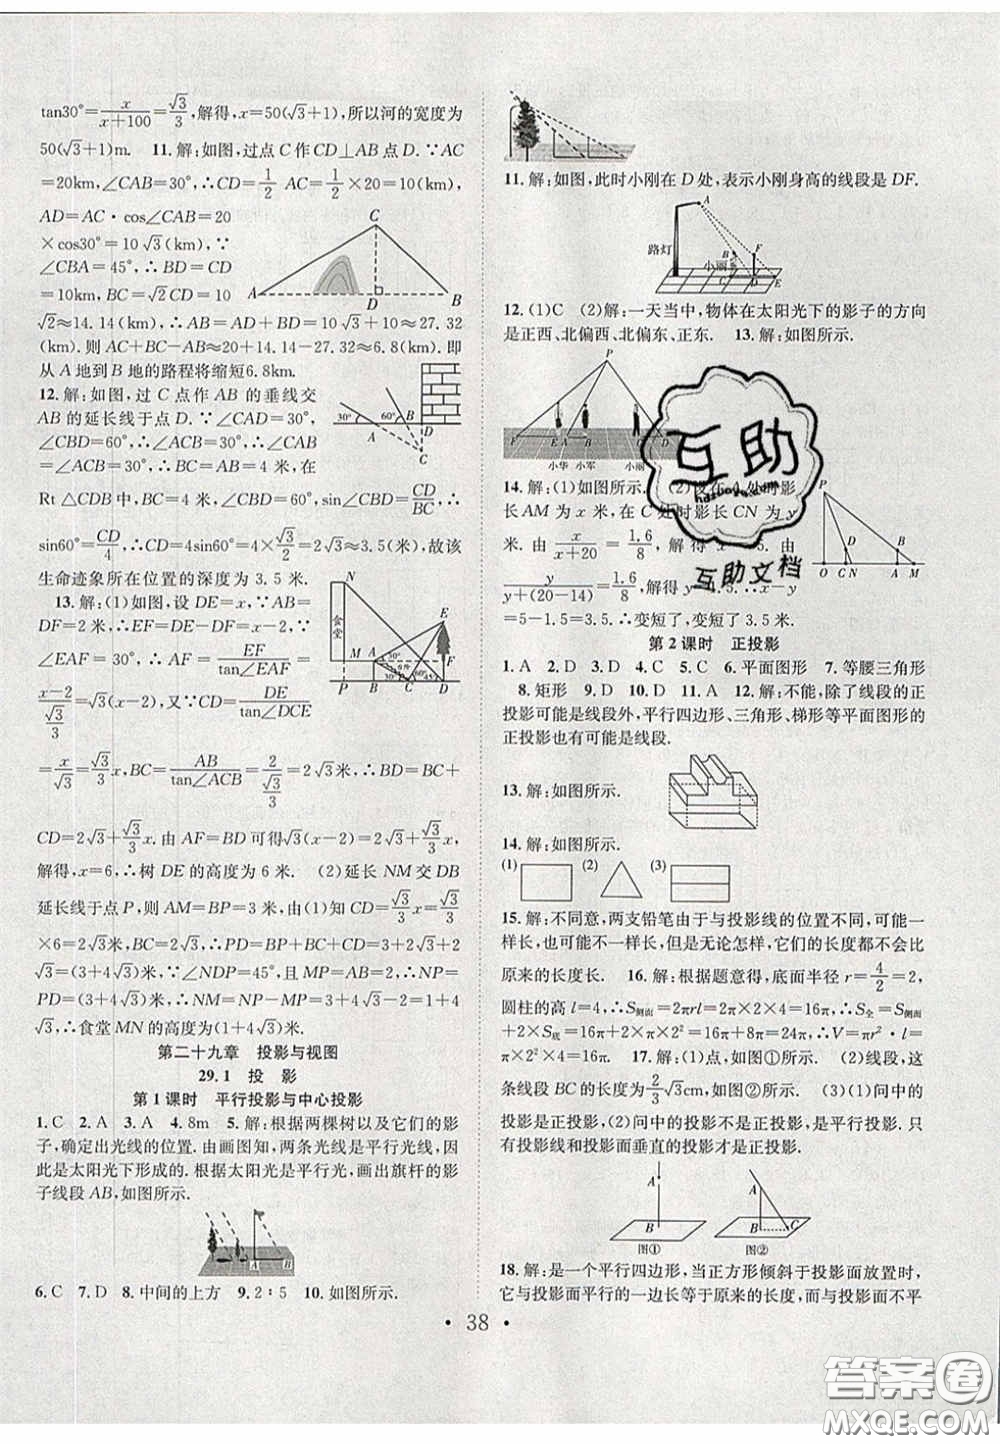 tan30°=x/(x+100)=√3/3,解得,x=50(√3+1),所以河的宽度为
50(√3+1)m. 11.解:如图,过点C作CD⊥AB点D.∵AC
=20km,∠CAB=30°,∴CD=1/2 AC=1/2×20=10(km),
AD=AC·cos∠CAB=20
×cos30°=10√3(km),∵
∠CBA=45°,∴BD=CD
=10km,BC=√2CD=10
√2≈14.14(km).∴AB=AD+BD=10√3+10≈27.32
(km).则AC+BC-AB≈20+14.14-27.32≈6.8(km).即
从A地到B地的路程将缩短6.8km.
12.解:如图,过C点作AB的垂线交
AB的延长线于点D.∵∠CAD=30°,
∠CBD=60°,∴∠ACB=30°,∴
∠CAB=∠ACB=30°,∴BC=AB=4米,在
Rt△CDB中,BC=4米,∠CBD=60°,sin∠CBD=CD/BC,∴
sin60°=CD/4,∴CD=4sin60°=4×√3/2=2√3≈3.5(米),故该
生命迹象所在位置的深度为3.5米.
13.解:(1)如图,设DE=x,∵AB=
DF=2米,∴EF=DE-DF=x-2,∵
∠EAF=30°,∴AF=EF/tan∠EAF=
(x-2)/(√3/3)=√3(x-2),又∵CD=DE/tan∠DCE
=x/√3=√3/3 x,BC=AB/tan∠ACB=2/(√3/3)=2√3米,∴BD=BC+
CD=2√3+√3/3 x.由AF=BD可得√3(x-2)=2√3+√3/3 x,
解得,x=6米,∴树DE的高度为6米. (2)延长NM交DB
延长线于点P,则AM=BP=3米,由(1)知CD=√3/3 x=√3/3
×6=2√3米,BC=2√3米,∴PD=BP+BC+CD=3+2√3+
2√3=3+4√3米.∵∠NDP=45°,且MP=AB=2米,∴NP=
PD=(3+4√3)米,∴NM=NP-MP=3+4√3-2=(1+4
√3)米,∴食堂MN的高度为(1+4√3)米.
第二十九章 投影与视图
29.1 投 影
第1课时 平行投影与中心投影
1.C 2.A 3.A 4.8m 5.解:根据两棵树以及它们的影
子,确定出光线的位置.由画图知,两条光线是平行光线,因
此是太阳光下形成的.根据太阳光是平行光,画出旗杆的影
子线段AB,如图所示.
6.C 7.D 8.中间的上方 9.2∶5 10.如图所示.
11.解:如图,此时小刚在D处,表示小刚身高的线段是DF.
路灯
小丽
12.(1)C (2)解:一天当中,物体在太阳光下的影子的方向
是正西、北偏西、北偏东、正东. 13.解:如图所示.
小华 小军 小丽
14.解:(1)如图所示. (2)设在A处时影
长AM为x米,在C处时影长CN为y
米.由x/(x+20)=1.6/8,解得x=5.由
y/(y+(20-14))=1.6/8,解得y=1.5.∴x-y
=5-1.5=3.5.∴变短了,变短了3.5米.
第2课时 正投影
1.A 2.D 3.D 4.C 5.C 6.平面图形 7.等腰三角形
8.矩形 9.D 10.D 11.A 12.解:不能,除了线段的正
投影可能是线段外,平行四边形、三角形、梯形等平面图形的
正投影也有可能是线段.
13.解:如图所示.
14.解:如图所示.
(1) (2) (3)
15.解:不同意,两支铅笔由于与投影线的位置不同,可能一
样长,也可能不一样长,但是无论怎样,它们的长度都不会比
原来的长度长. 16.解:根据题意得,底面半径r=4/2=2,
圆柱的高l=4,∴S侧面=2πrl=2π×2×4=16π,∴S全=S侧面
+2×S底=16π+2×π×2²=16π+8π=24π,∴V=πr²·l=
π×2²×4=16π. 17.解:(1)点,如图①所示.(2)线段,这
条线段BC的长度为2/3√3cm,如图②所示. (3)(1)问中的
投影是正投影,(2)问中的投影不是正投影,是平行投影.只
有投影线和投影面垂直的投影才是正投影.
图① 图②
18.解:是一个平行四边形,当正方形倾斜于投影面放置时,
它与投影面平行的一边长等于原来的长度,而与投影面不平
· 38 ·
互助
hdzuoye.com
互助文档
答案圈
MXQE.COM